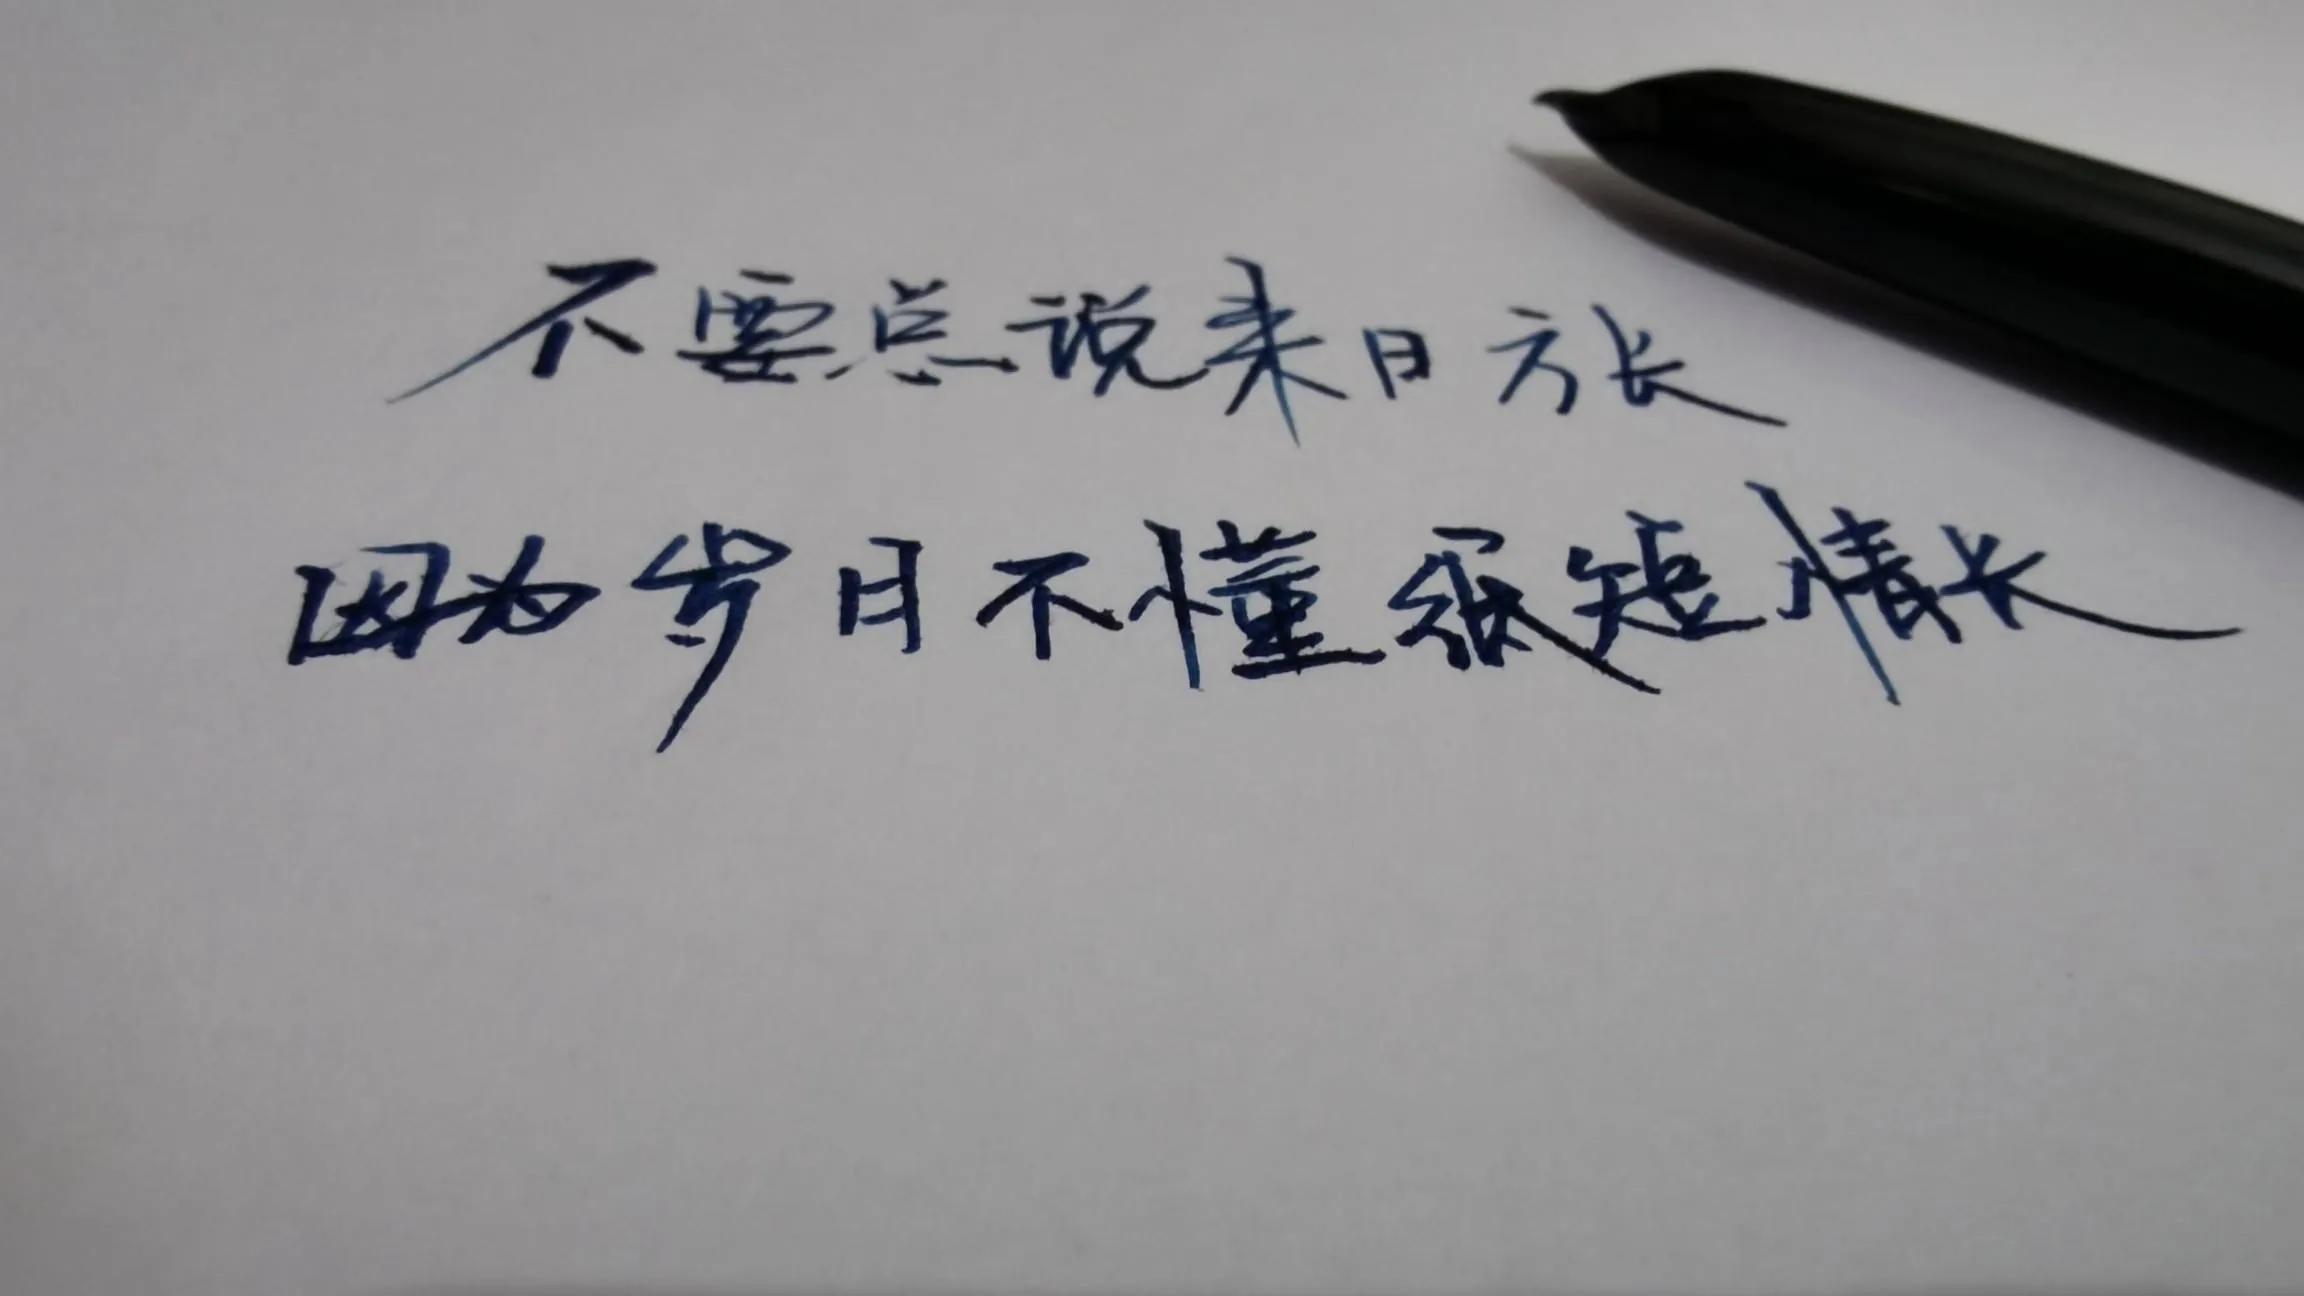 不要总说来日方长
因为岁月不懂纸短情长